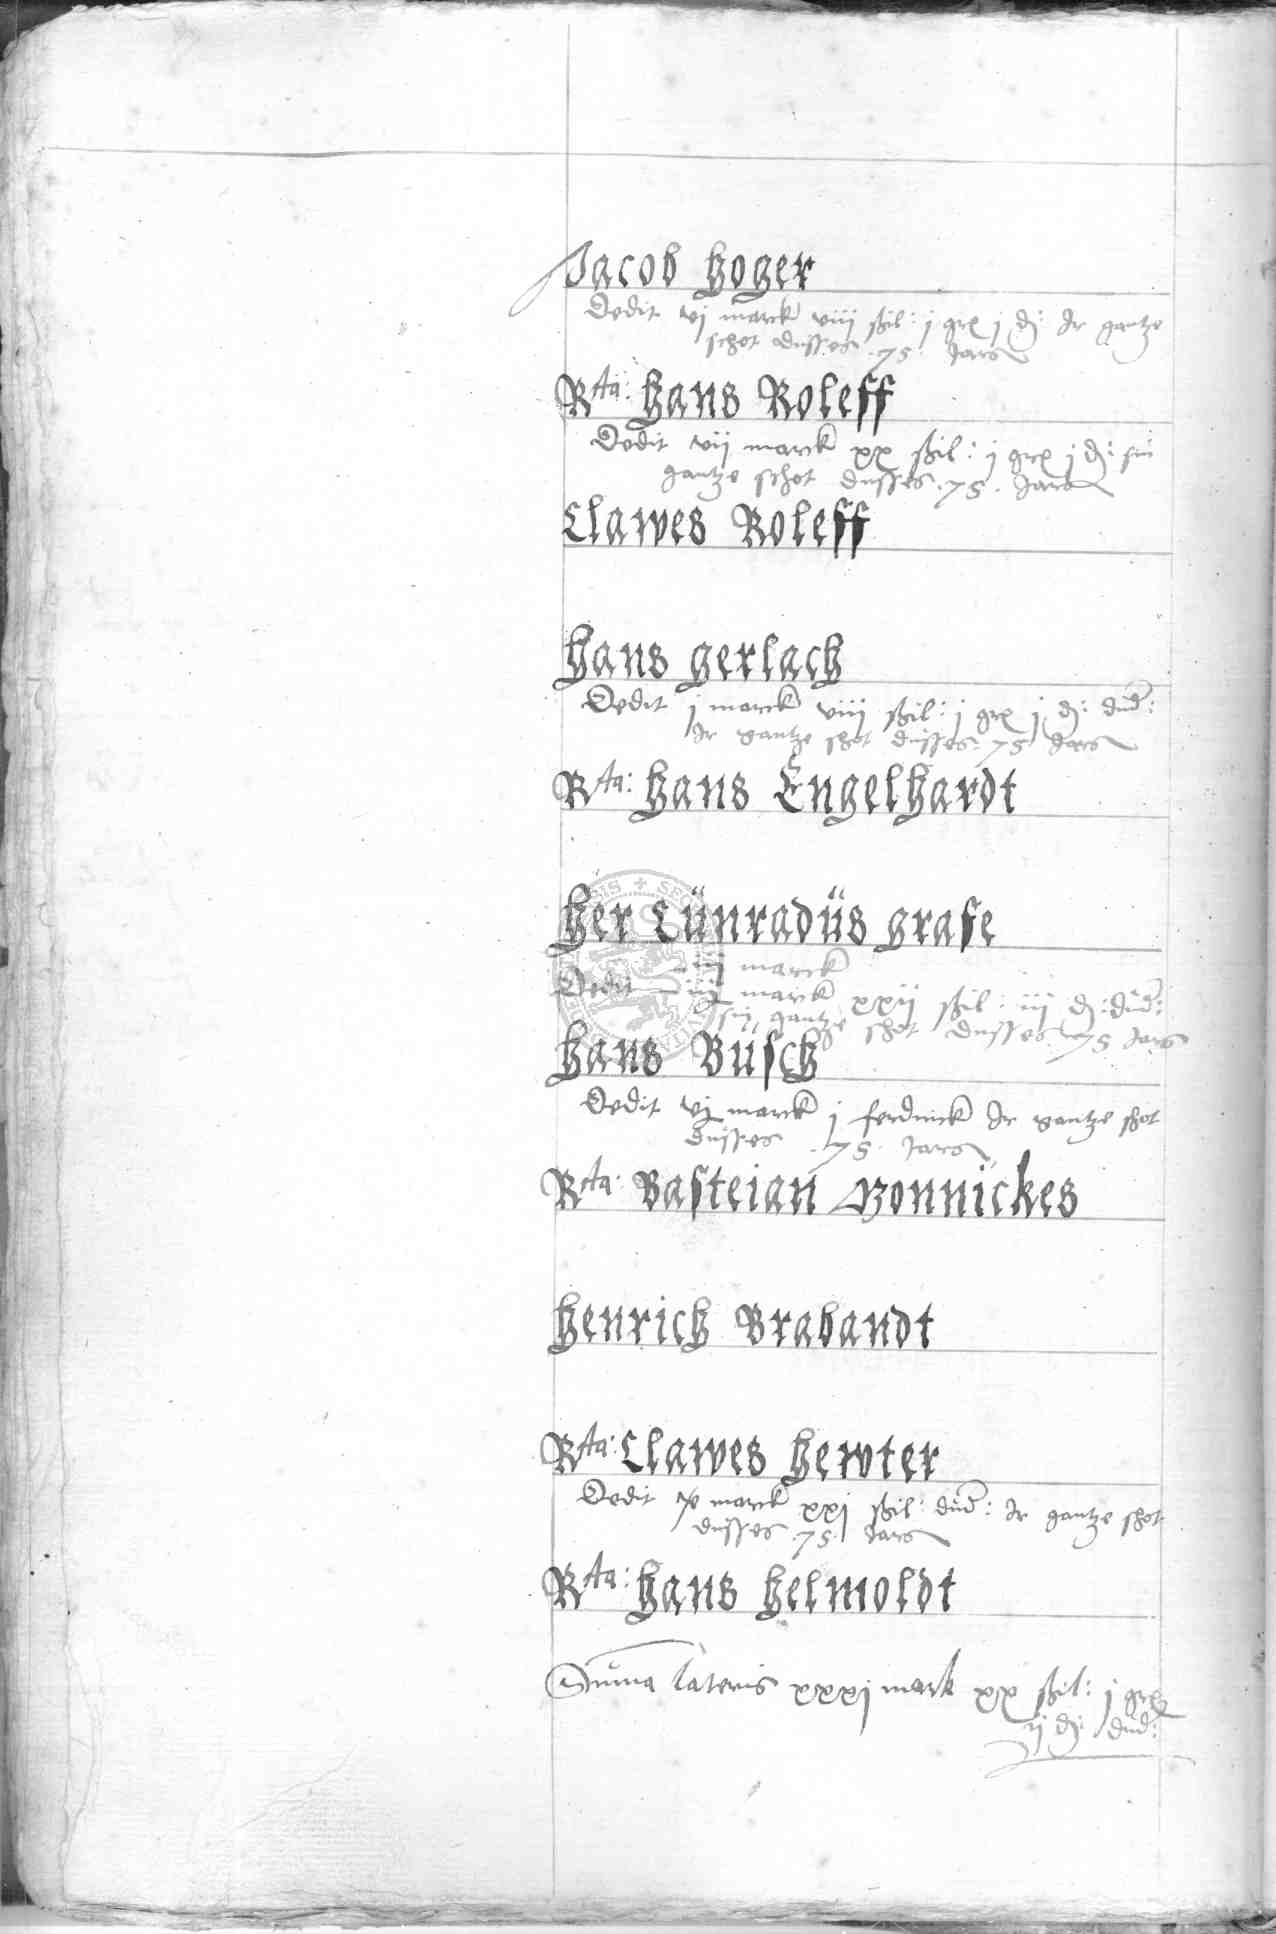 Jacob hoger
Dedit vj marck viii ßil: j grx j d: Ir gantze
schot dusses .75. Jars
Rta: hans Roleff
Dedit vij marck xx ßil: j grx j d: sin
gantze schot dusses .75. Jars
Clawes Roleff
hans gerlach
Dedit j marck viii ßil: j grx j d: dud:
Ir gantze shot dusses .75 Jars
Rta: hans Engelhardt
her Cünradüs grafe
iij marck
Dedit iiij marck xxij ßil: iii d: dud:
sin gantze shot dusses 75 Jars
hans Büsch
Dedit vj marck j ferdinck Ir gantze shot
dusses .75. Jars
Rta: Basteian Monnickes
henrich Brabandt
Rta: Clawes hewter
Dedit marck xxj ßil: dud: Ir gantze shot
dusses .75. Jars
Rta: hans helmoldt
Suma lateris xxxj mark xx ßil: j grx
ij d: dud: